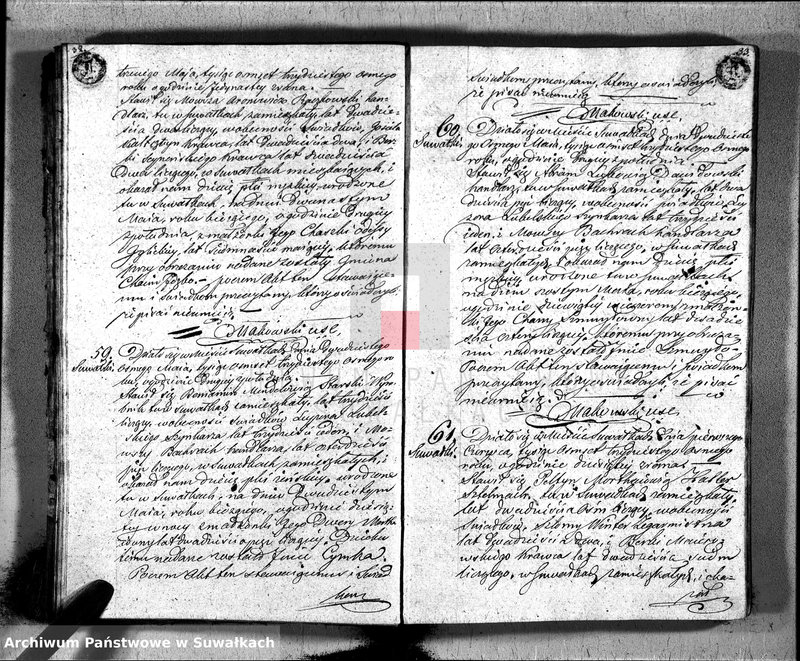 32
trzeciego Maja, tysiąc ośmset trzydziestego osmego
roku o godzinie jedynastej z rana.
Stawił się Mowsza Aronowicz han-
dlarz, tu w Suwałkach zamieszkały, lat dwadzie-
ścia dwa liczący, w obecności świadków,
krawca, lat dwadzieścia dwa, i Ber-
ki krawca lat dwadzieścia
dwa liczącego, w Suwałkach mieszkających, i
okazał nam dziecię płci męzkiej, urodzone
tu w Suwałkach, na dniu dwunastym
Maia, roku bieżącego, o godzinie drugiej
z południa, z małżonki Jego Chaszki
lat siedmnaście maiącej, któremu
przy obrzezaniu nadane zostały Imiona
Chaim. poczem Akt ten stawaiące-
mu i świadkom przeczytany, którzy oświadczyli
że pisać nieumieią
Makowski usc.
59.
Suwałki.
Działo się w mieście Suwałkach dnia dwudziestego
osmego Maia, tysiąc ośmset trzydziestego osmego ro-
ku, o godzinie drugiej z południa.
Stawił się Starski, wyro-
bnik tu w Suwałkach zamieszkały, lat trzydzieści
liczący, w obecności świadków Leyzora Lubel-
skiego Szynkarza lat trzydzieści ieden, i Mo-
wszy Bachrach handlarza, lat czterdzieści
pięć liczącego, w Suwałkach zamieszkałych, i
okazał nam dziecię płci żeńskiej, urodzone
tu w Suwałkach, na dniu dwudziestym
Maia, roku bieżącego, o godzinie dziesią-
tej w nocy z małżonki Jego Dwory
lat dwadzieścia pięć liczącej, Dziecku
temu nadane zostało Imie Cymka.
Poczem Akt ten stawaiącemu i świad-
kom
33
świadkom przeczytany, którzy oświadczyli
że pisać nieumieią
Makowski usc.
60.
Suwałki.
Działo się w mieście Suwałkach dnia dwudziest-
ego osmego Maia, tysiąc ośmset trzydziestego osmego
roku, o godzinie drugiej z południa.
Stawił się Abram Dawidowski
handlarz, tu w Suwałkach zamieszkały, lat dwa-
dzieścia liczący, w obecności świadków, Ley-
zora Lubelskiego Szynkarza lat trzydzieści
ieden, i Mowszy Bachrach handlarza
lat czterdzieści pięć liczącego, w Suwałkach
zamieszkałych, i okazał nam dziecię płci
męzkiej, urodzone tu w Suwałkach,
na dniu szóstym Maia, roku bieżącego,
o godzinie dziewiątej wieczorem, z małżon-
ki Jego Chany lat dwadzie-
ścia liczącej, któremu przy obrzeza-
niu nadane zostało Imie
Poczem Akt ten stawaiącemu, i świadkom
przeczytany, którzy oświadczyli, że pisać
nieumieią.
Makowski usc.
61.
Suwałki.
Działo się w mieście Suwałkach dnia pierwszego
Czerwca, tysiąc ośmset trzydziestego osmego
roku, o godzinie dziesiątej z rana.
Stawił się
tu w Suwałkach zamieszkały,
lat dwadzieścia osm liczący, w obecności
świadków, Szlomy Winter Zegarmistrza
lat dwadzieścia dwa, i Berki
krawca lat dwadzieścia siedm
liczącego, w Suwałkach zamieszkałych, i oka-
zał
Archiwum Państwowe w Suwałkach